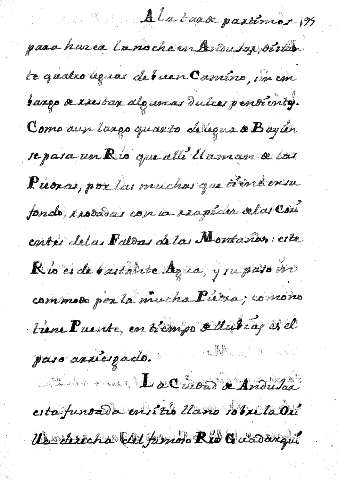 A la tarde partimos 199
para hazer la noche en Andujar, distan
te quatro leguas de buen Camino, sin em
bargo de restar algunas dulces pendientes.
Como a un largo quarto de legua de Baylen
se pasa un Rio que alli llaman de las
Piedras, por las muchas que tiene en su
fondo, rodadas con la rapidez de las Cori
entes de las Faldas de las Montañas: este
Rio es de bastante Agua, y su paso in
commodo por la mucha Piedra; como no
tiene Puente, en tiempo de lluvias es el
paso arriesgado.
La Ciudad de Andujar
esta fundada en sitio llano sobre la Ori
lla derecha del famoso Rio Guadarqui